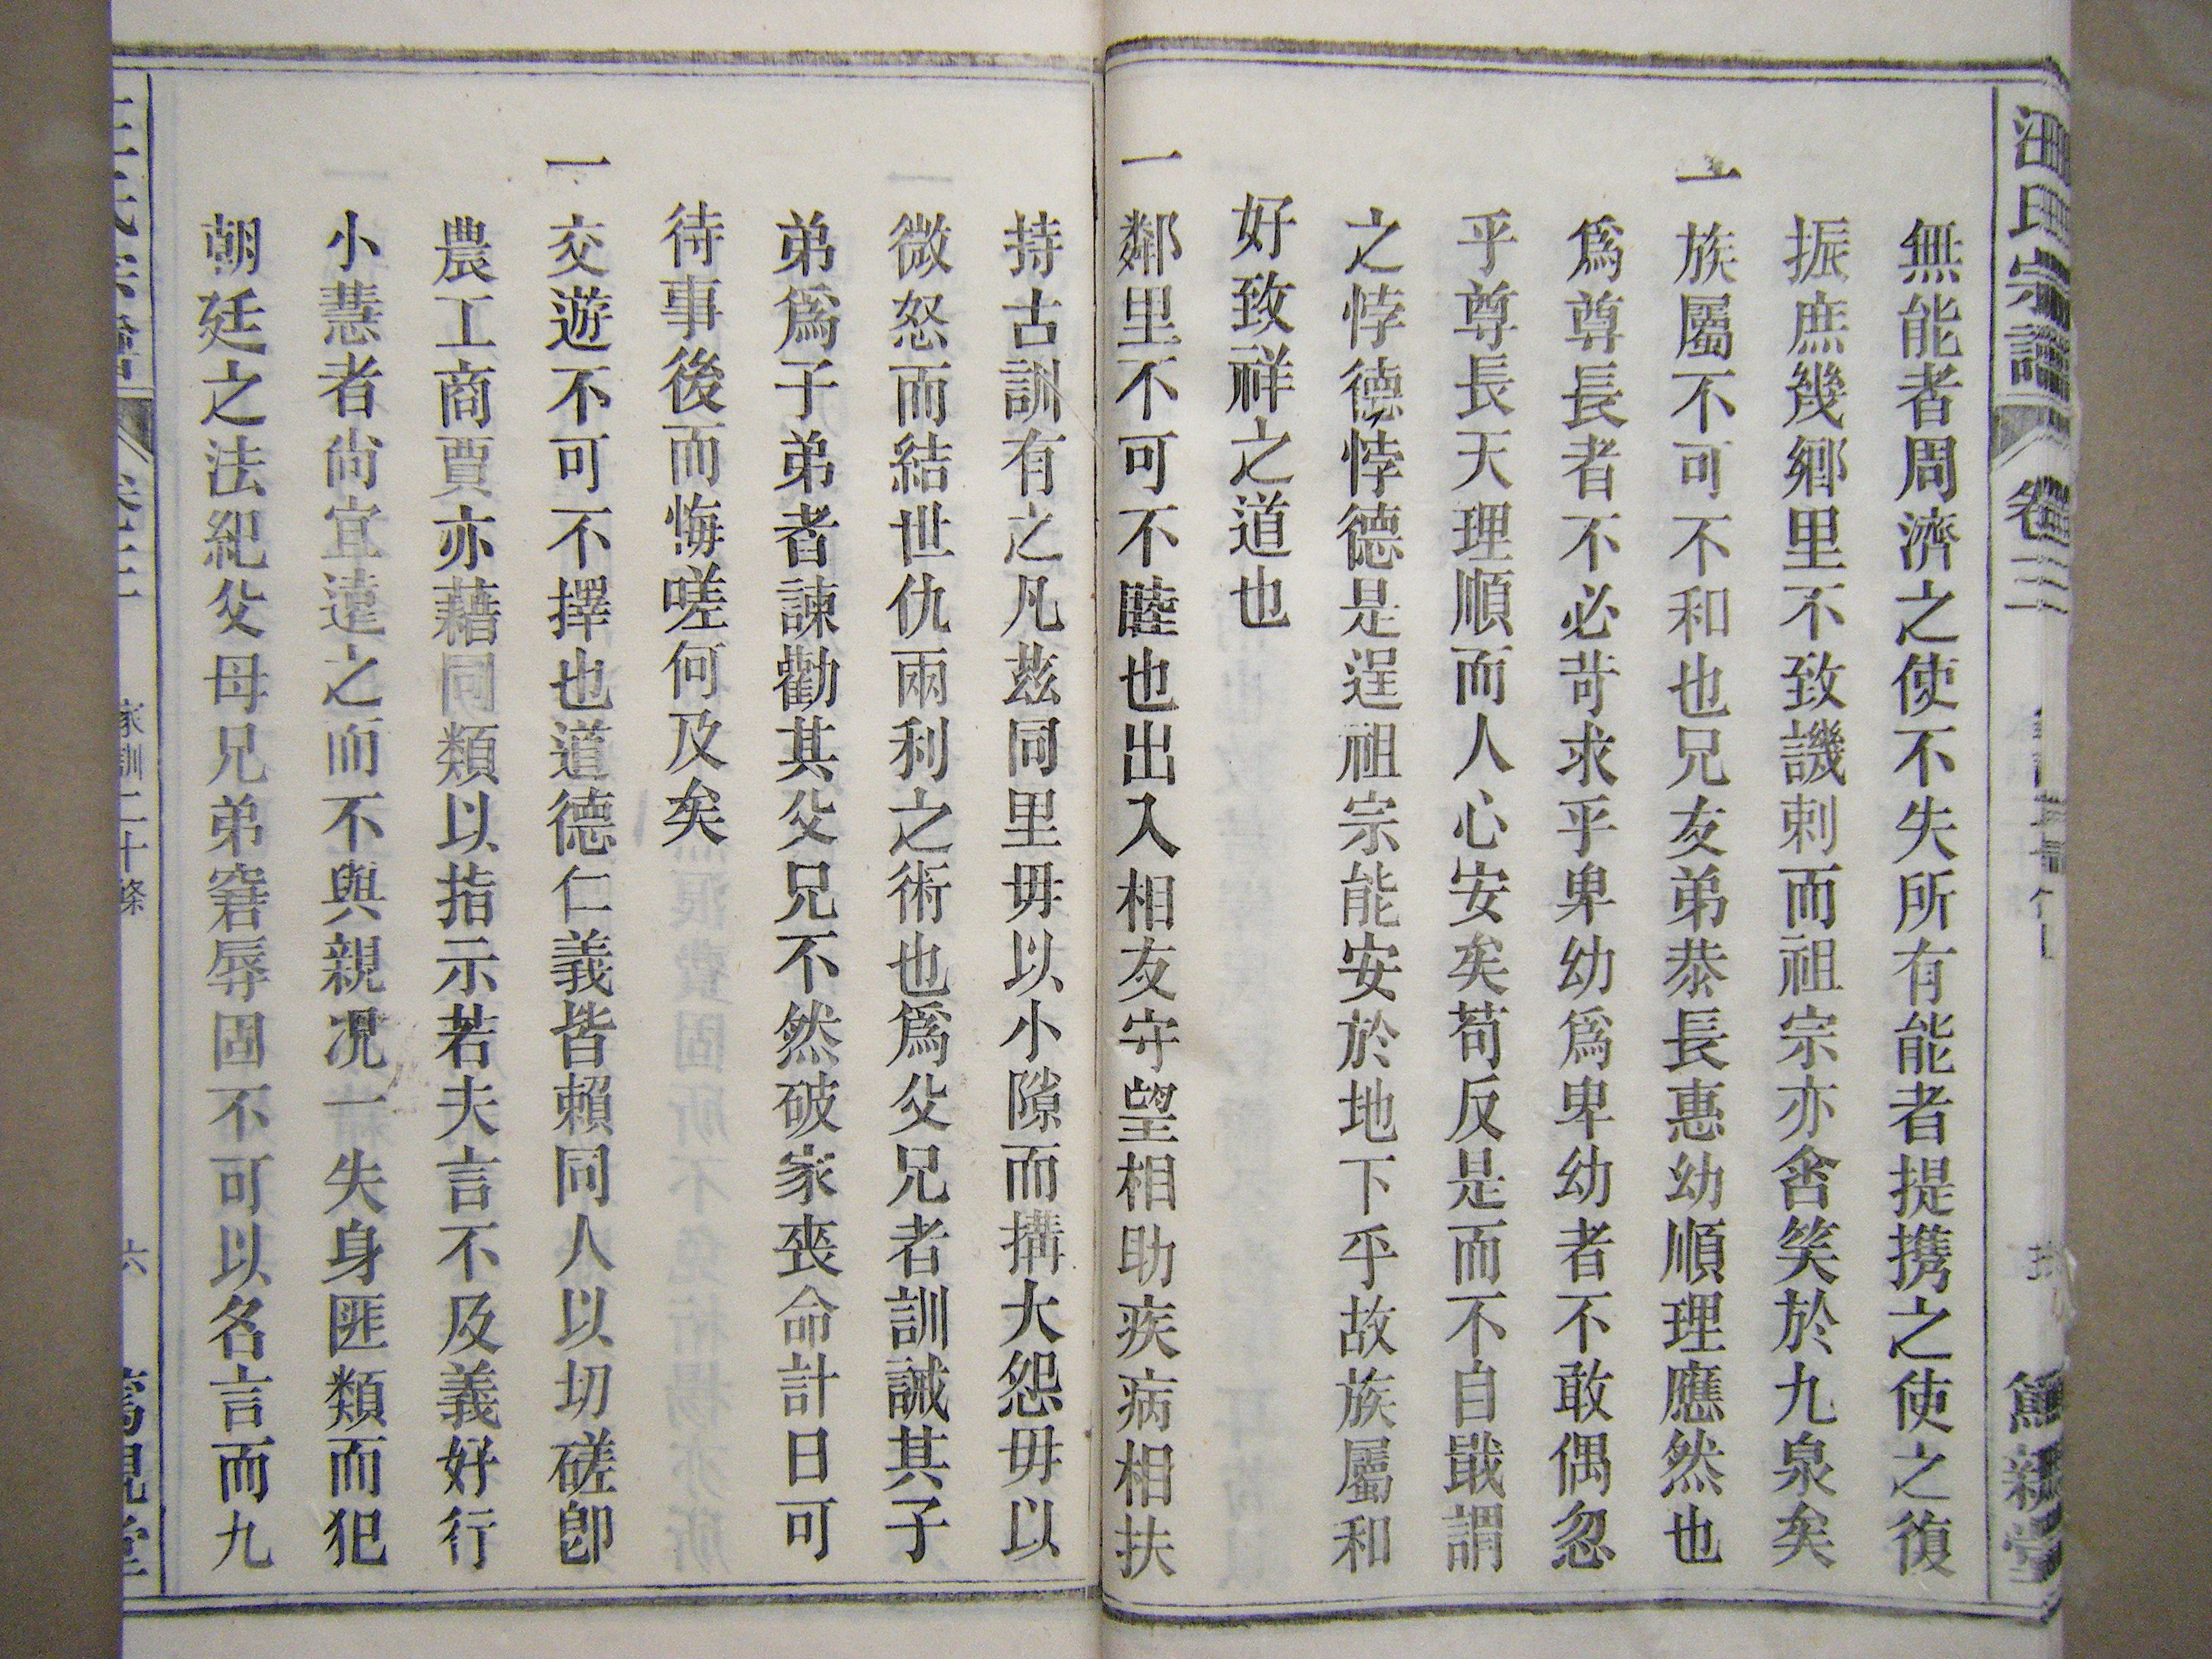 汪氏宗譜 卷三 篤親堂
無能者周濟之使不失所有能者提携之使之復
振庶幾鄉里不致譏刺而祖宗亦含笑於九泉矣
一族屬不可不和也兄友弟恭長惠幼順理應然也
爲尊長者不必苛求乎卑幼爲卑幼者不敢偶忽
乎尊長天理順而人心安矣苟反是而不自戢謂
之悖德悖德是逞祖宗能安於地下乎故族屬和
好致祥之道也
一鄰里不可不睦也出入相友守望相助疾病相扶
持古訓有之凡茲同里毋以小隙而搆大怨毋以
微怒而結世仇兩利之術也爲父兄者訓誡其子
弟爲子弟者諫勸其父兄不然破家喪命計日可
待事後而悔嗟何及矣
一交遊不可不擇也道德仁義皆賴同人以切磋卽
農工商賈亦藉同類以指示若夫言不及義好行
小慧者尙宜遠之而不與親况一失身匪類而犯
朝廷之法紀父母兄弟窘辱固不可以名言而九
卷三 家訓二十條 六 篤親堂